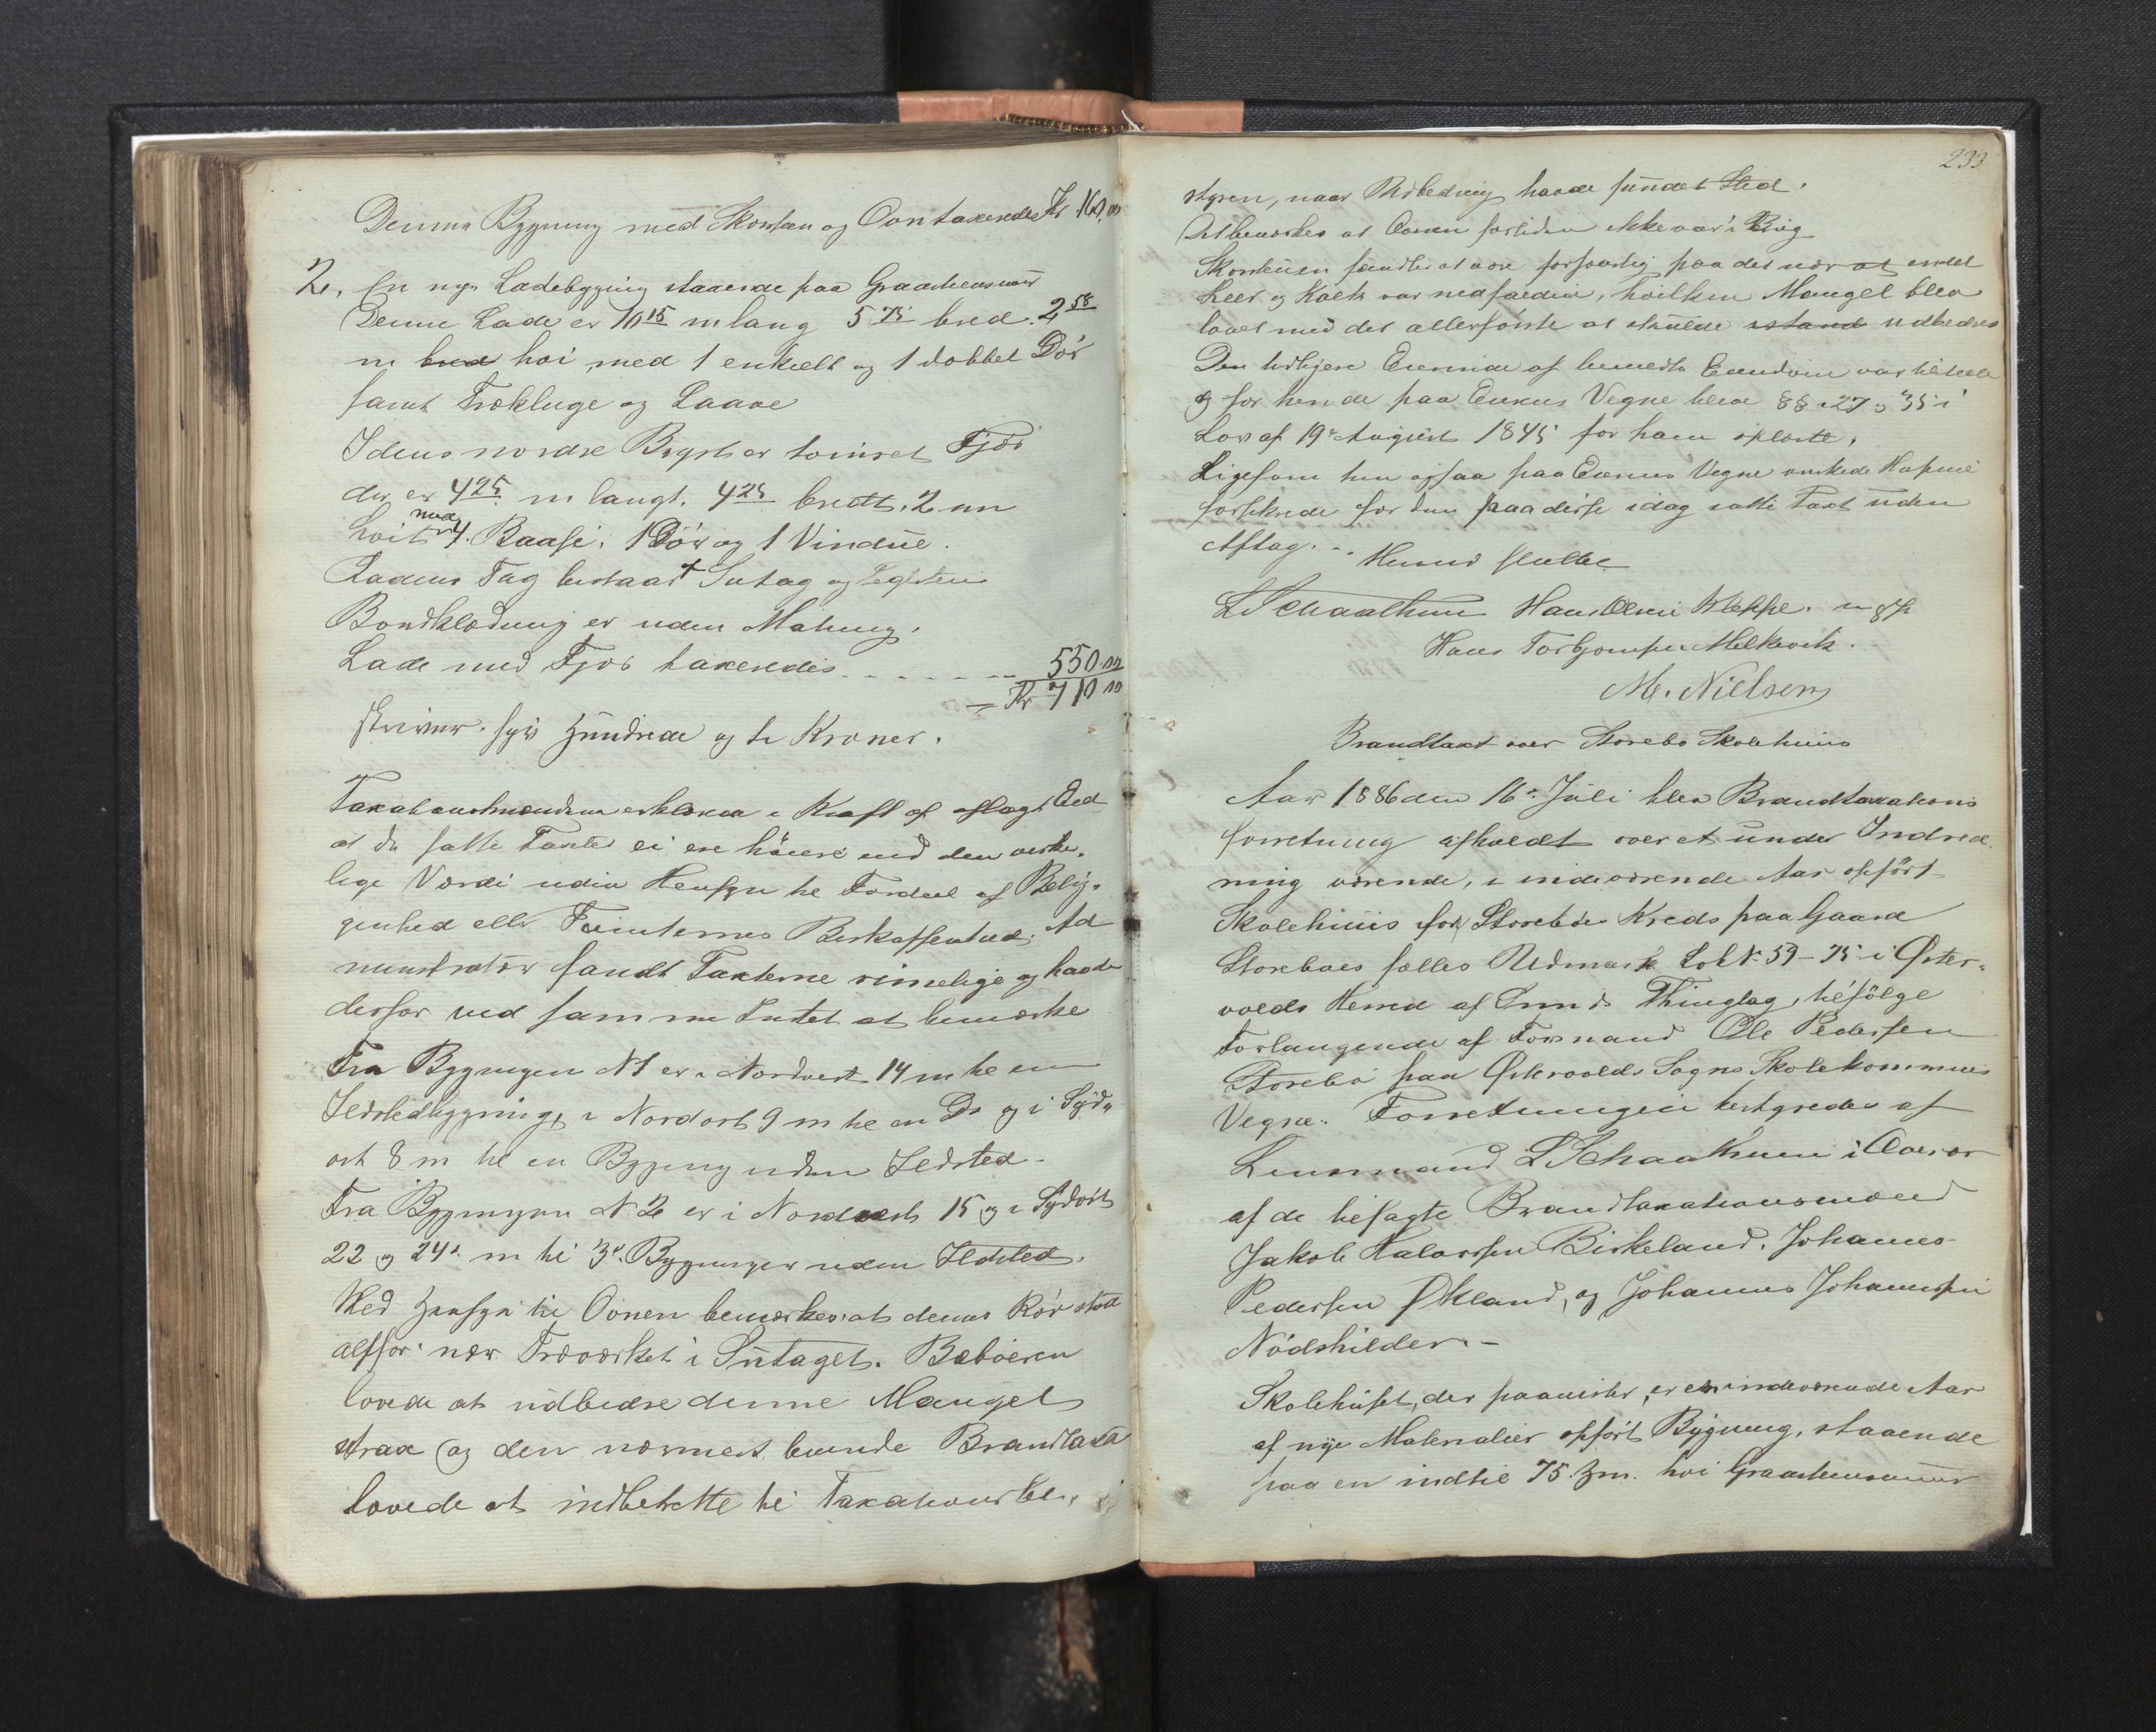 Denne Bygning med Skorsten og Ovn taxeredes Kr 160,00
2, En ny Ladebygning staaende paa Graastensmuur
Denne Lade er 10 15 m lang 5 75 bred 2 58
m bred høi, med 1 enkelt og 1 dobbel Dør
samt Trækluge og Laave
I dens nordre Bygst er Fjøs
der er 4 25 m langt, 4 25 bredt, 2 m
høit med 4 Baase, 1 Dør og 1 Vindue.
Ladens Tag bestaar Sutag og Teglsten
Bordklædning er uden Maling.
Lade med Fjøs taxeredes 550.00
= Kr 710 00
skriver syv Hundrede og ti Kroner.
Taxationsmændene erklærede i Kraft af aflagt Eed
at de satte Taxter ei ere høiere end den virke-
lige Værdi uden Hensyn til Fordeel af Belig-
genhed eller Tomternes Beskaffenhed. Ad
ministrator fandt Taxterne rimelige og havde
derfor ved samme Intet at bemærke
Fra Bygningen N 1 er i Nordvest 14 m til en
Ildstedbygning, i Nordost 9 m til en Do og i Syd-
ost 8 m til en Bygning uden Ildsted.
Fra Bygningen N 2 er i Nordvest 15 og i Sydost
22 og 24 m til 3 Bygninger uden Ildsted.
Med Hensyn til Ovnen bemærkes, at dennes Rør stod
altfor nær Træværket i Sutaget. Beboeren
lovede at udbedre denne Mangel
strax og den nærmest boende Brandtaxt
lovede at indberette til Taxationsbe-
233
styren, naar Udbedring havde fundet Sted.
Det bemærkes at Ovnen fortiden ikke var i Brug
Skorstenen fandtes at være forsvarlig paa det nær at endel
Leer og Kalk var nedfalden, hvilken Mangel blev
lovet med det allerførste at skulde istand udbedres
Den tidligere Eierinde af Eiendom var tilstede
og for hende paa Eierens Vegne blev §§ 27 og 35 i
Lov af 19 August 1845 for ham oplæste.
Ligesom hun ogsaa paa Eierens Vegne ønskede Husene
forsikrede for den paa disse idag satte Taxt uden
Aftag. Herved sluttet
L Schaathun Hans Olsen Kleppe. m. p. P.
Hans Torbjørnsen Melkevik.
M. Nielsen
Brandtaxt over Storebø Skolehuus
Aar 1886 den 16 Juli blev Brandtaxations
forretning afholdt over et under Indred
ning værende, i indeværende Aar opført
Skolehuus for Storebø Kreds paa Gaard
Storebøes fælles Udmark Lob N 59-75 i Øster-
volds Herred af Sunds Thinglag, tilfølge
Forlangende af Formand Ole Pedersen
Storebø paa Østervolds Sogns Skolekommunes
Vegne. Forretningen bestyredes af
Lensmand L Schaathun i Overvær
af de tilsagte Brandtaxationsmænd
Jakob Halvorsen Birkeland, Johannes
Pedersen Økland, og Johannes Johannesen
Nødskilder.-
Skolehuset, der paavistes, er en indeværende Aar
af nye Materialier opført Bygning, staaende
paa en indtil 75. Zm. høi Graastensmuur